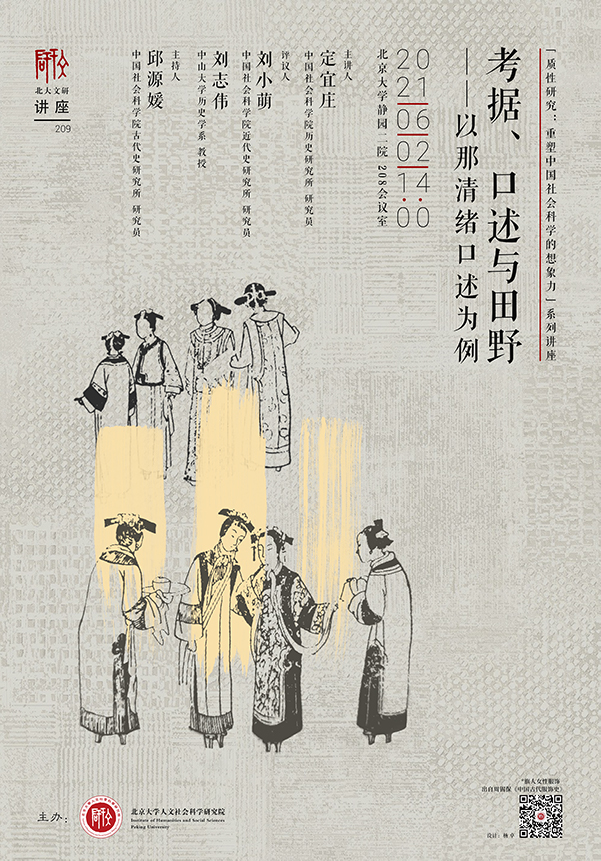 「质性研究：重塑中国社会科学的想象力」系列讲座
考据、口述与田野
——以那清绪口述为例
2021|06|02|14:00
北京大学静园二院 208会议室
主讲人
定宜庄
中国社会科学院历史研究所 研究员
评议人
刘小萌
中国社会科学院近代史研究所 研究员
刘志伟
中山大学历史学系 教授
主持人
邱源媛
中国社会科学院古代史研究所 研究员
北大文研
讲座
209
*旗人女性服饰
出自周锡保《中国古代服饰史》
主办：
北京大学人文社会科学研究院
Institute of Humanities and Social Sciences
Peking University